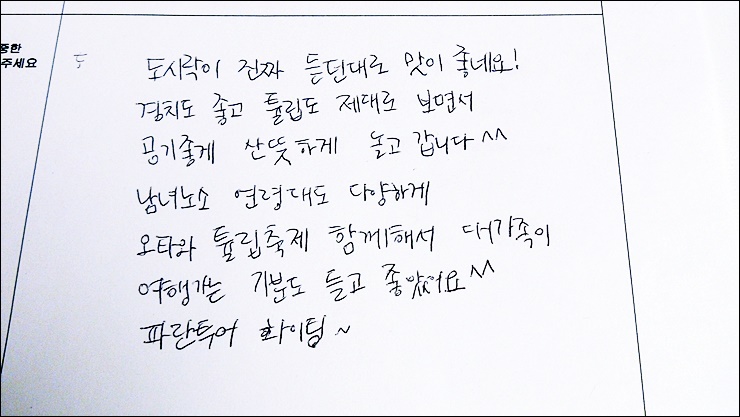 중한
주세요
도
도시락이 진짜 듣던대로 맛이 좋네요!
경치도 좋고 튤립도 제대로 보면서
공기좋게 산뜻하게 놀고 갑니다^^
남녀노소 연령대도 다양하게
오타와 튤립축제 함께해서 대가족이
여행가는 기분도 들고 좋았어요^^
파란투어 화이팅~